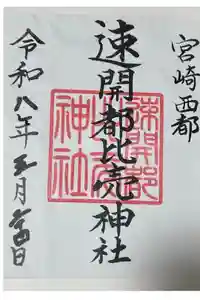 宮崎西都
速開都比売神社
速開都
比売
神社
令和八年五月吉日